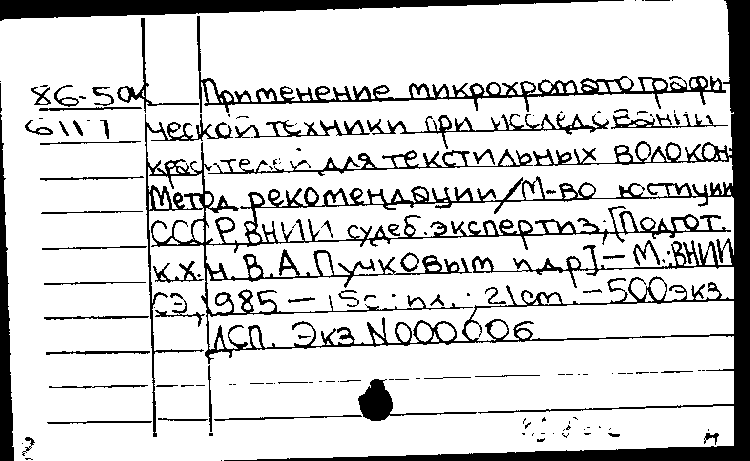 86-5ок Применение микрохроматографи-
6117 ческой техники при исследовании
красителей для текстильных волокон:
Метод рекомендации/М-во юстиции
СССР, ВНИИ судеб. экспертиз, [Подгот.
к.х.н. В.А. Пучковым и др]. - М.: ВНИИ
СЭ, 1985 - 15с.: ил.; 21cm. - 500экз.
ДСП. Экз. N000006